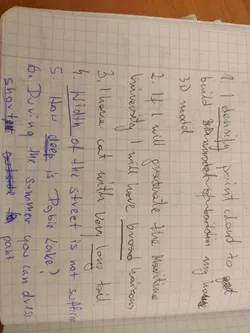 1. I density point cloud to get
build my house
3D model
2. If I will graduate the Maritime
University I will have broad horizon
3. I have cat with very long tail
4. Width of the street is not suffice
5. How deep is Pople Lake?
6. During the summer you can dress
short pant